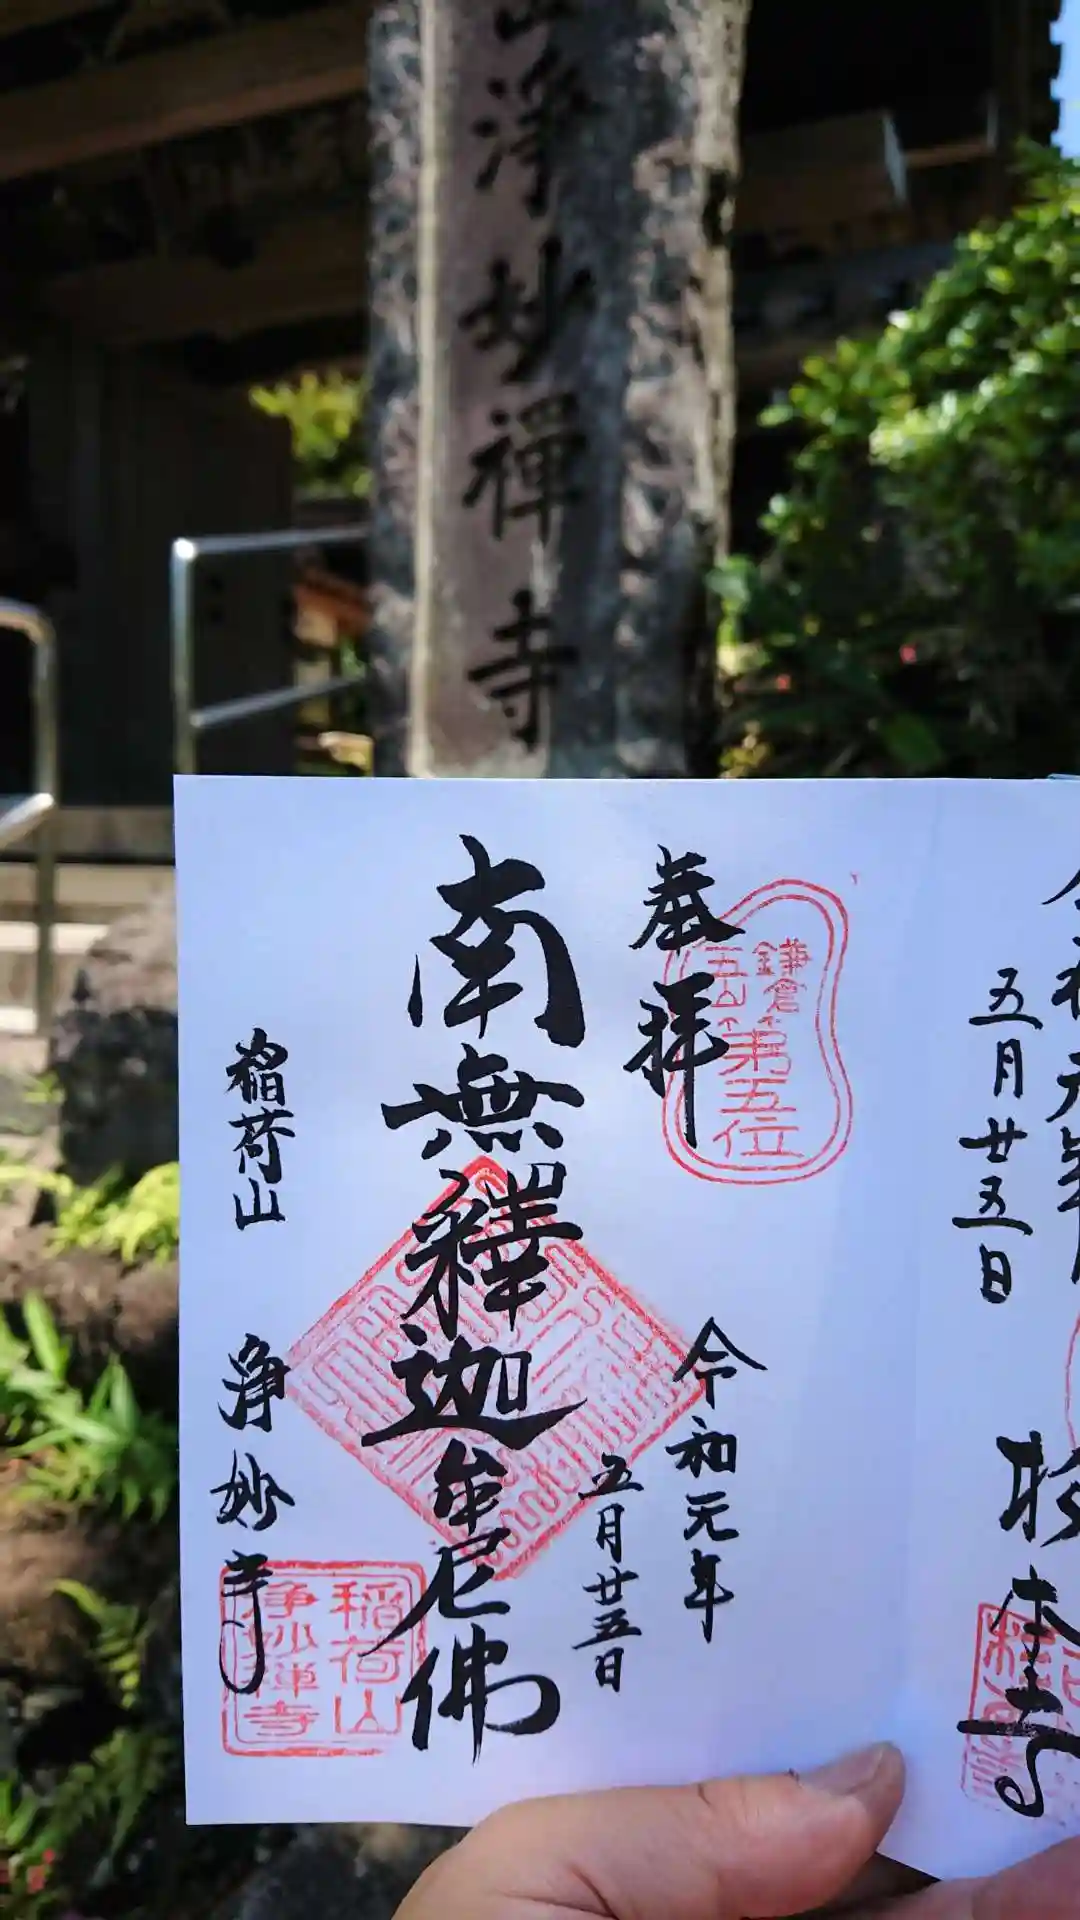 山浄妙禅寺
五月廿五日
奉拝
鎌倉
五山
第五位
令和元年
五月廿五日
南無釋迦牟尼佛
稲荷山
浄妙寺
稲荷山
浄妙禅寺